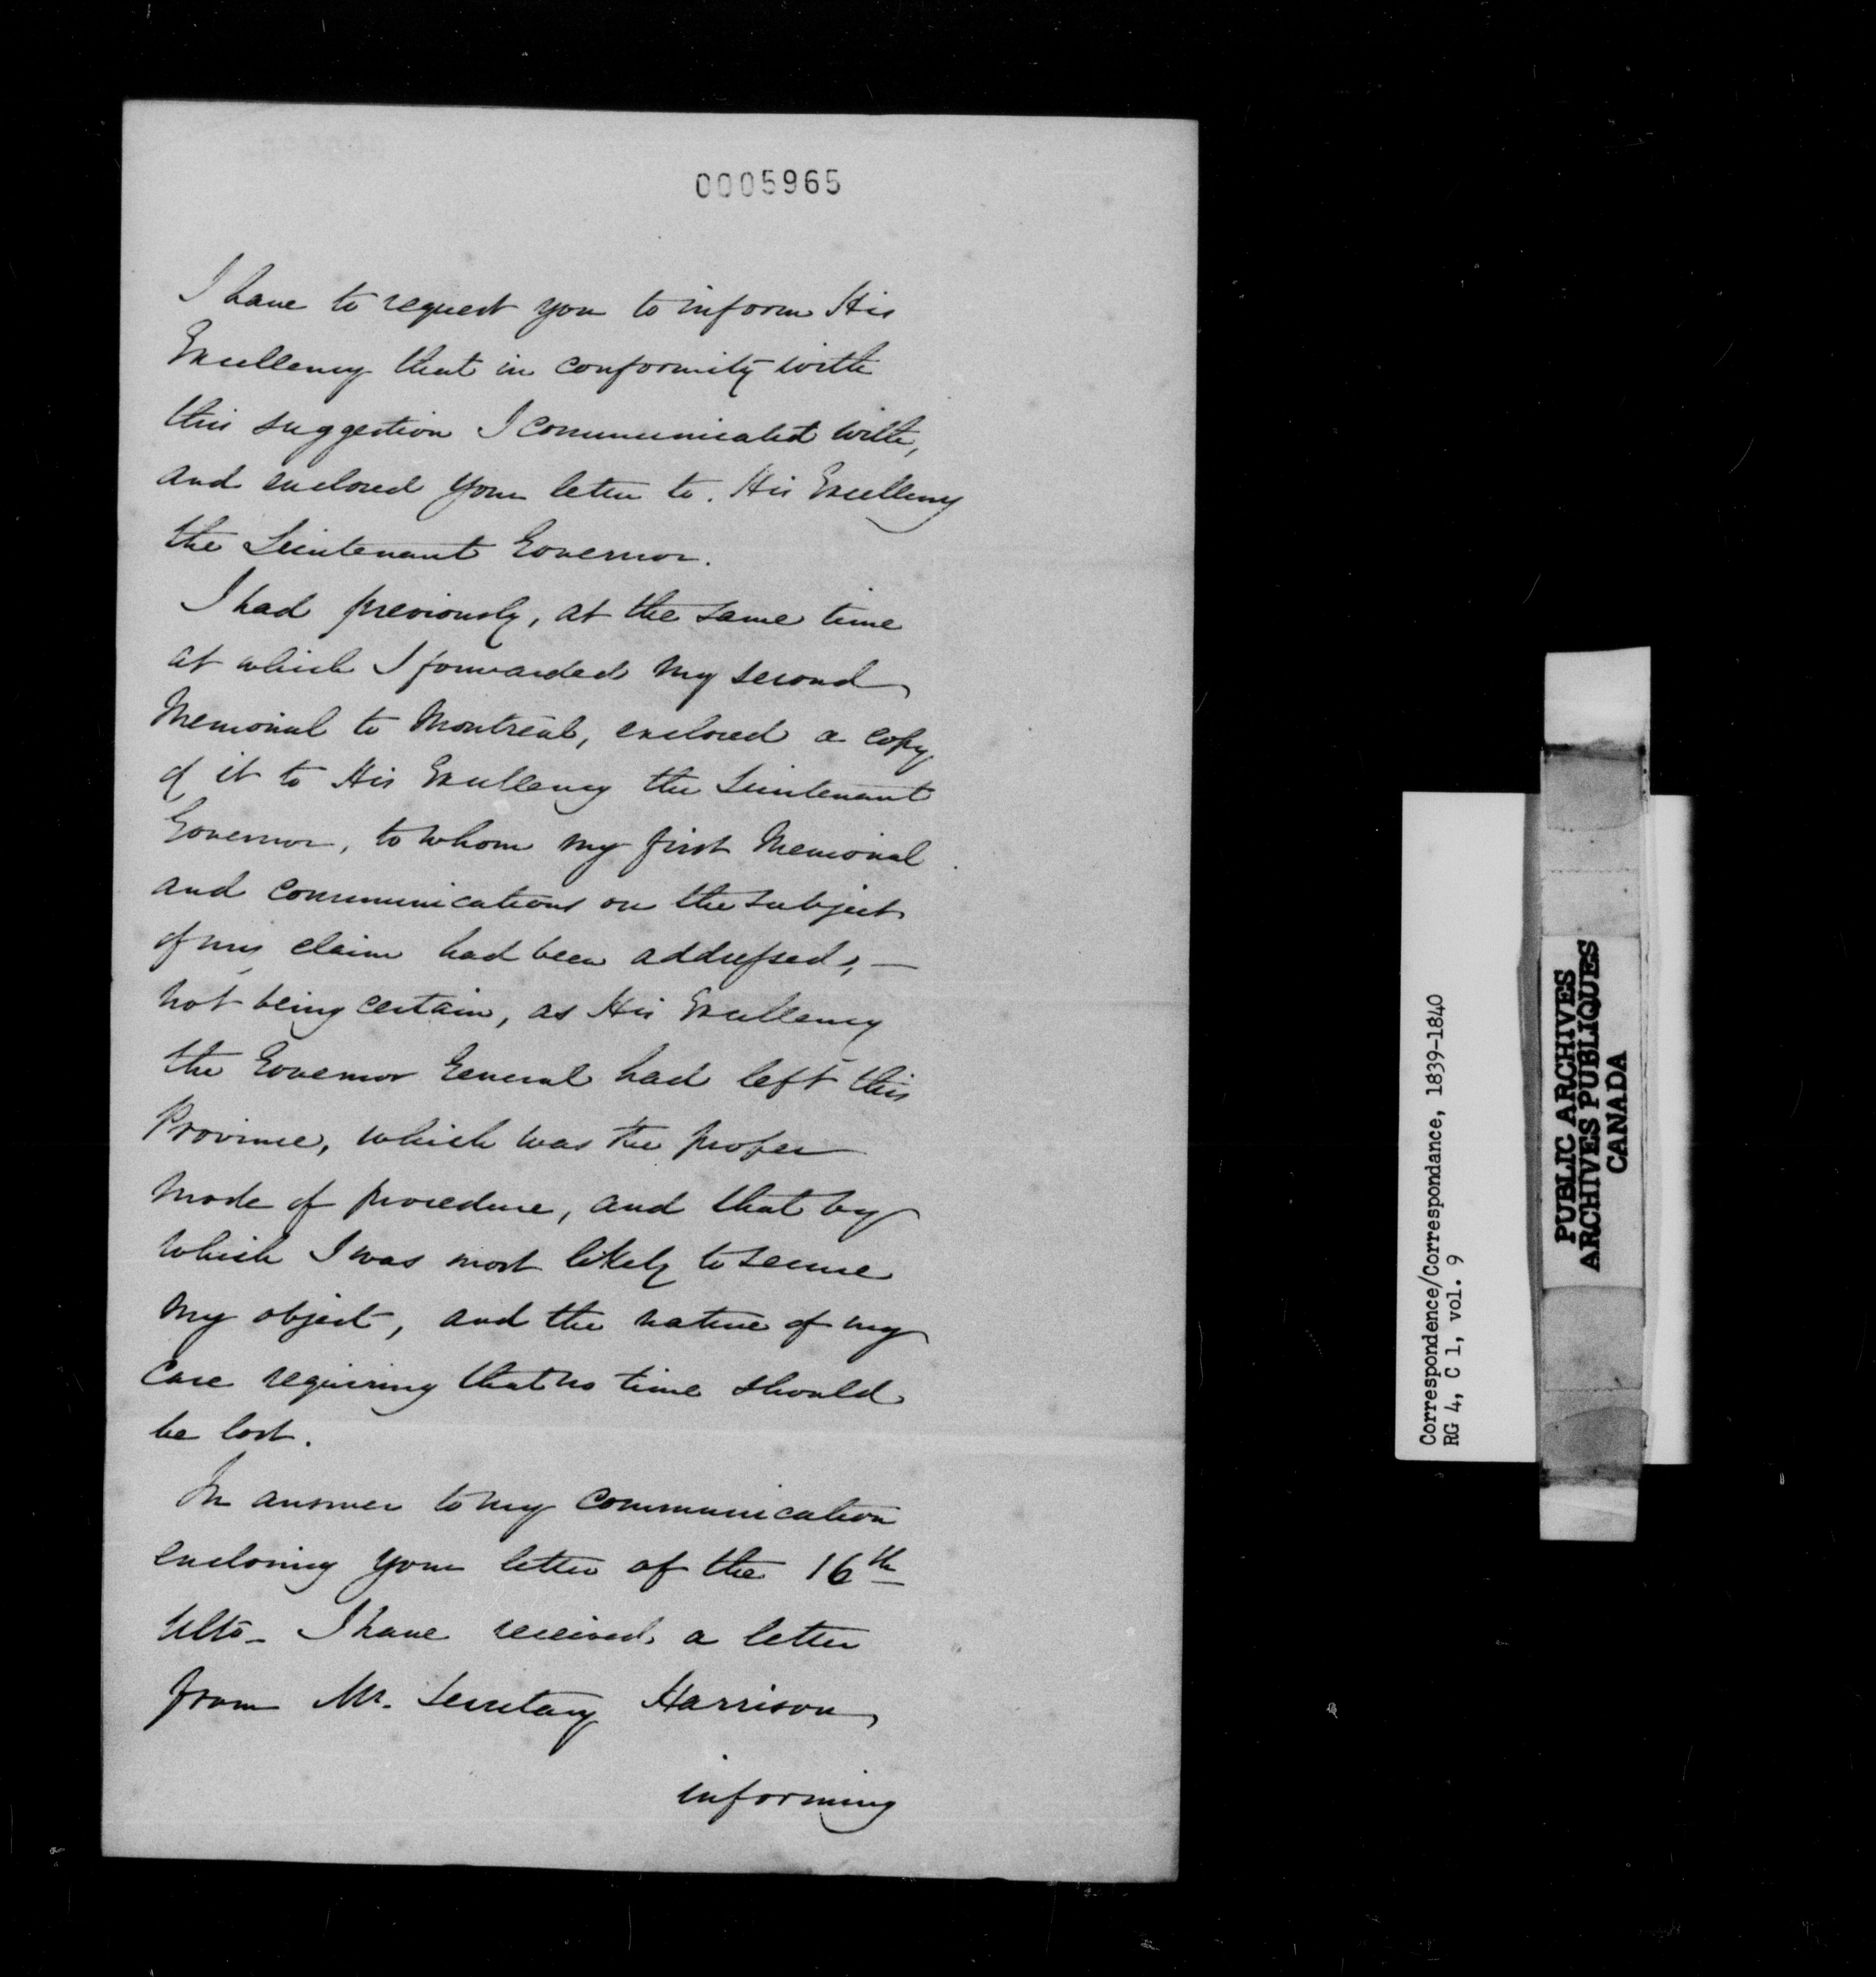 0005965
I have to request you to inform His
Excellency that in conformity with
this suggestion I communicated with,
and enclosed your letter to. His Excellency
the Lieutenant Governor.
I had previously, at the same time
at which I forwarded my second
Memorial to Montreal, enclosed a copy
of it to His Excellency the Lieutenant
Governor, to whom my first Memorial
and communications on the subject
of my claim had been addressed, —
not being certain, as His Excellency
the Governor General had left this
Province, which was the proper
mode of procedure, and that by
which I was most likely to secure
my object, and the nature of my
case requiring that no time should
be lost.
In answer to my communication
enclosing your letter of the 16th
Ulto- I have received a letter
from Mr. Secretary Harrison,
informing
Correspondence/Correspondance, 1839-1840
RG 4, C 1, vol. 9
PUBLIC ARCHIVES
ARCHIVES PUBLIQUES
CANADA